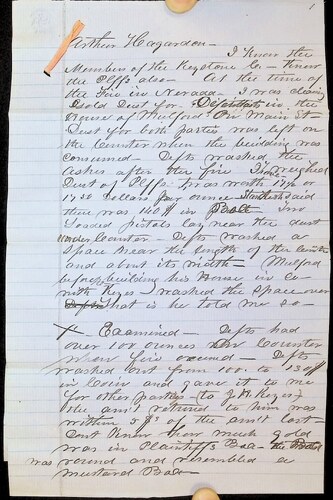 1
Arthur Hagardon —
I Know the
Members of the Keystone Co — Know
the Plffs also — At the time of
the Fire in Nevada — I was
Gold Dust for Defendants in the
House of Mulford On Main St —
Dust for both parties was left on
the Counter when the building was
consumed — Defts washed the
ashes after the fire I weighed
Dust of Plffs. Was worth 17½ or
17.50 Dollars par ounce said
there was 140 in — Two
Loaded pistols lay near the dust
under Counter — Defts washed a
space near the length of the
and about its width — Mulford
before building his House in co
with Keyes — washed the space over
That is he told me so —
X — Examined — Defts had
over 100 ounces on Counter
when fire occurred — Defts
washed out from 100 to 130
in Coin and gave it to me
for other parties — (to J. H. Keyes)
the am't returned to him was
within 5 of the am't lost
Dont Know how much gold
was in Plaintiffs
was round and resembled a
mustard